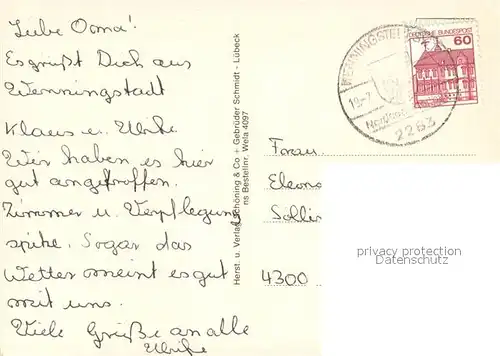 Liebe Oma!
Es grüßt Dich aus
Wenningstadt
Klaus u. Ulrike
Wir haben es hier
gut angetroffen.
Zimmer u. Verpflegung
spitze. Sogar das
Wetter meint es gut
mit uns.
Viele Grüße an alle
Ulrike
Herst. u. Verlag Schöning & Co + Gebrüder Schmidt - Lübeck
ns Bestellnr. Wela 4097
WENNINGSTE
2283
DEUTSCHE BUNDESPOST
60
Frau
Eleono
4300
privacy protection
Datenschutz